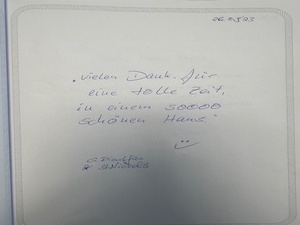 "vielen Dank für
eine tolle Zeit,
in einem soooo
schönen Haus."